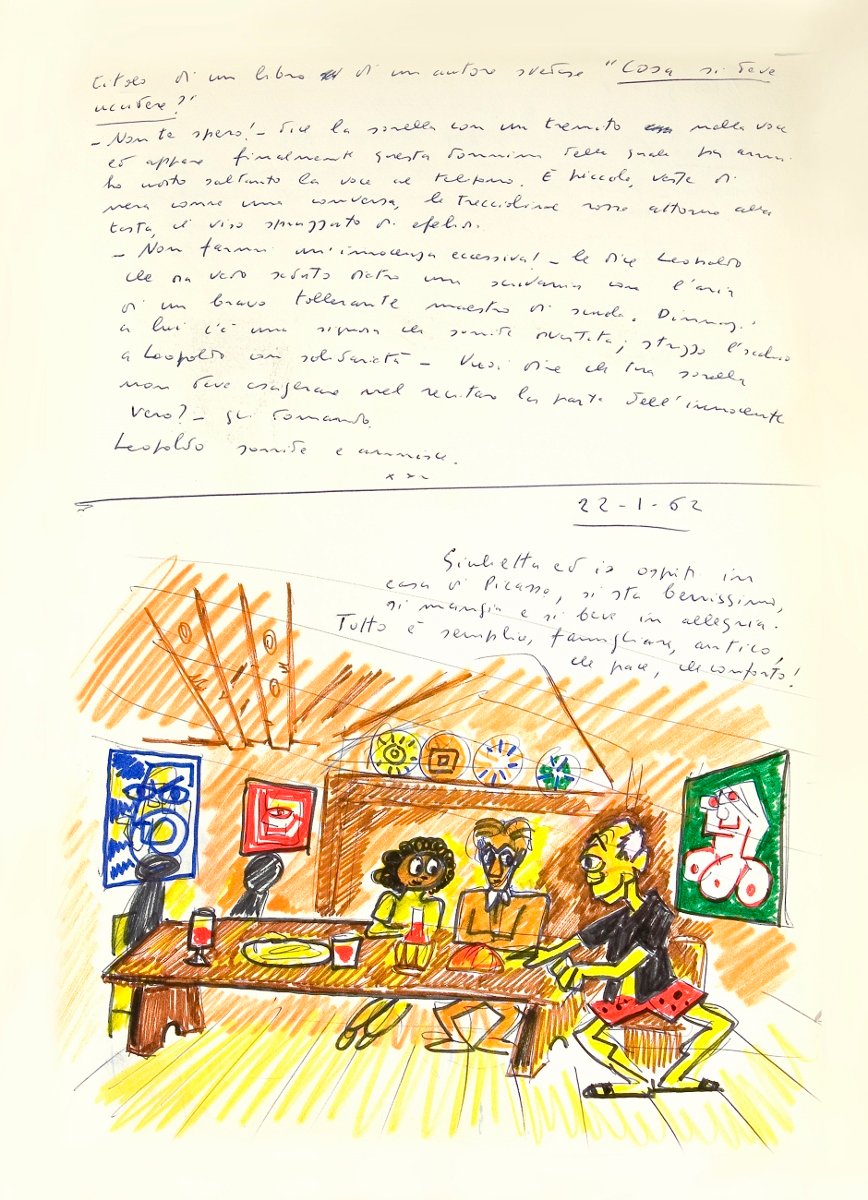 titolo di un libro di un autore svedese "Cosa si deve
uccidere?"
- Non te spero! - dice la sorella con un tremito nella voce
ed appare finalmente questa donnina della quale per anni
ho udito soltanto la voce al telefono. È piccola, veste di
nera come una conversa, le treccioline rosse attorno alla
testa, il viso spruzzato di efelidi.
- Non farmi un'innocenza eccessiva! - le dice Leopoldo
che ora vedo seduto dietro una scrivania con l'aria
di un bravo tollerante maestro di scuola. Dinnanzi
a lui c'è una signora che sorride divertita; strizzo l'occhio
a Leopoldo con solidarietà - Vuoi dire che tua sorella
non deve esagerare nel recitare la parte dell'innocente
vero? - gli domando.
Leopoldo sorride e annuisce.
x x x
22-1-62
Giulietta ed io ospiti in
casa di Picasso, si sta benissimo,
si mangia e si beve in allegria.
Tutto è semplice, famigliare, antico,
che pace, che conforto!